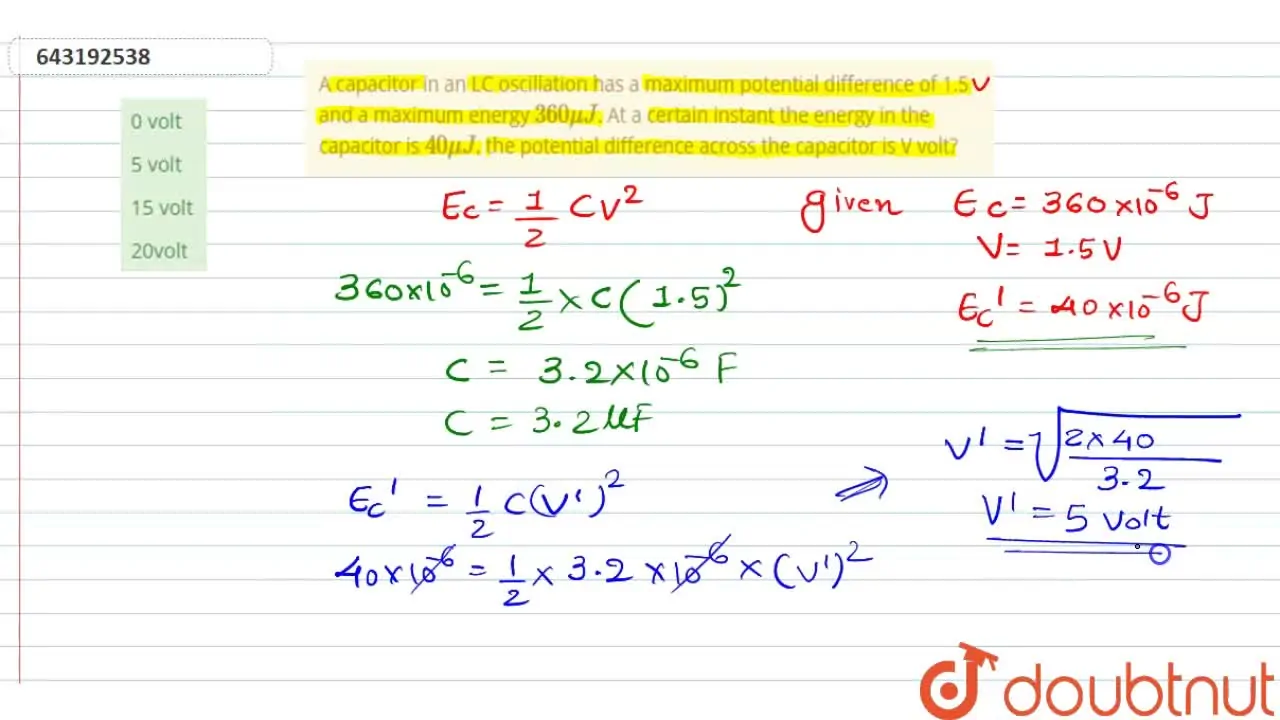 643192538
A capacitor in an LC oscillation has a maximum potential difference of 1.5 V
and a maximum energy 360μJ. At a certain instant the energy in the
capacitor is 40μJ. the potential difference across the capacitor is V volt?
0 volt
5 volt
15 volt
20volt
Ec = 1/2 CV²
given Ec = 360×10⁻⁶ J
V = 1.5 V
Ec' = 40×10⁻⁶ J
360×10⁻⁶ = 1/2 × C (1.5)²
C = 3.2×10⁻⁶ F
C = 3.2 μF
Ec' = 1/2 C(V')²
40×10⁻⁶ = 1/2 × 3.2 ×10⁻⁶ × (V')²
⇒ V' = √(2×40/3.2)
V' = 5 volt
doubtnut